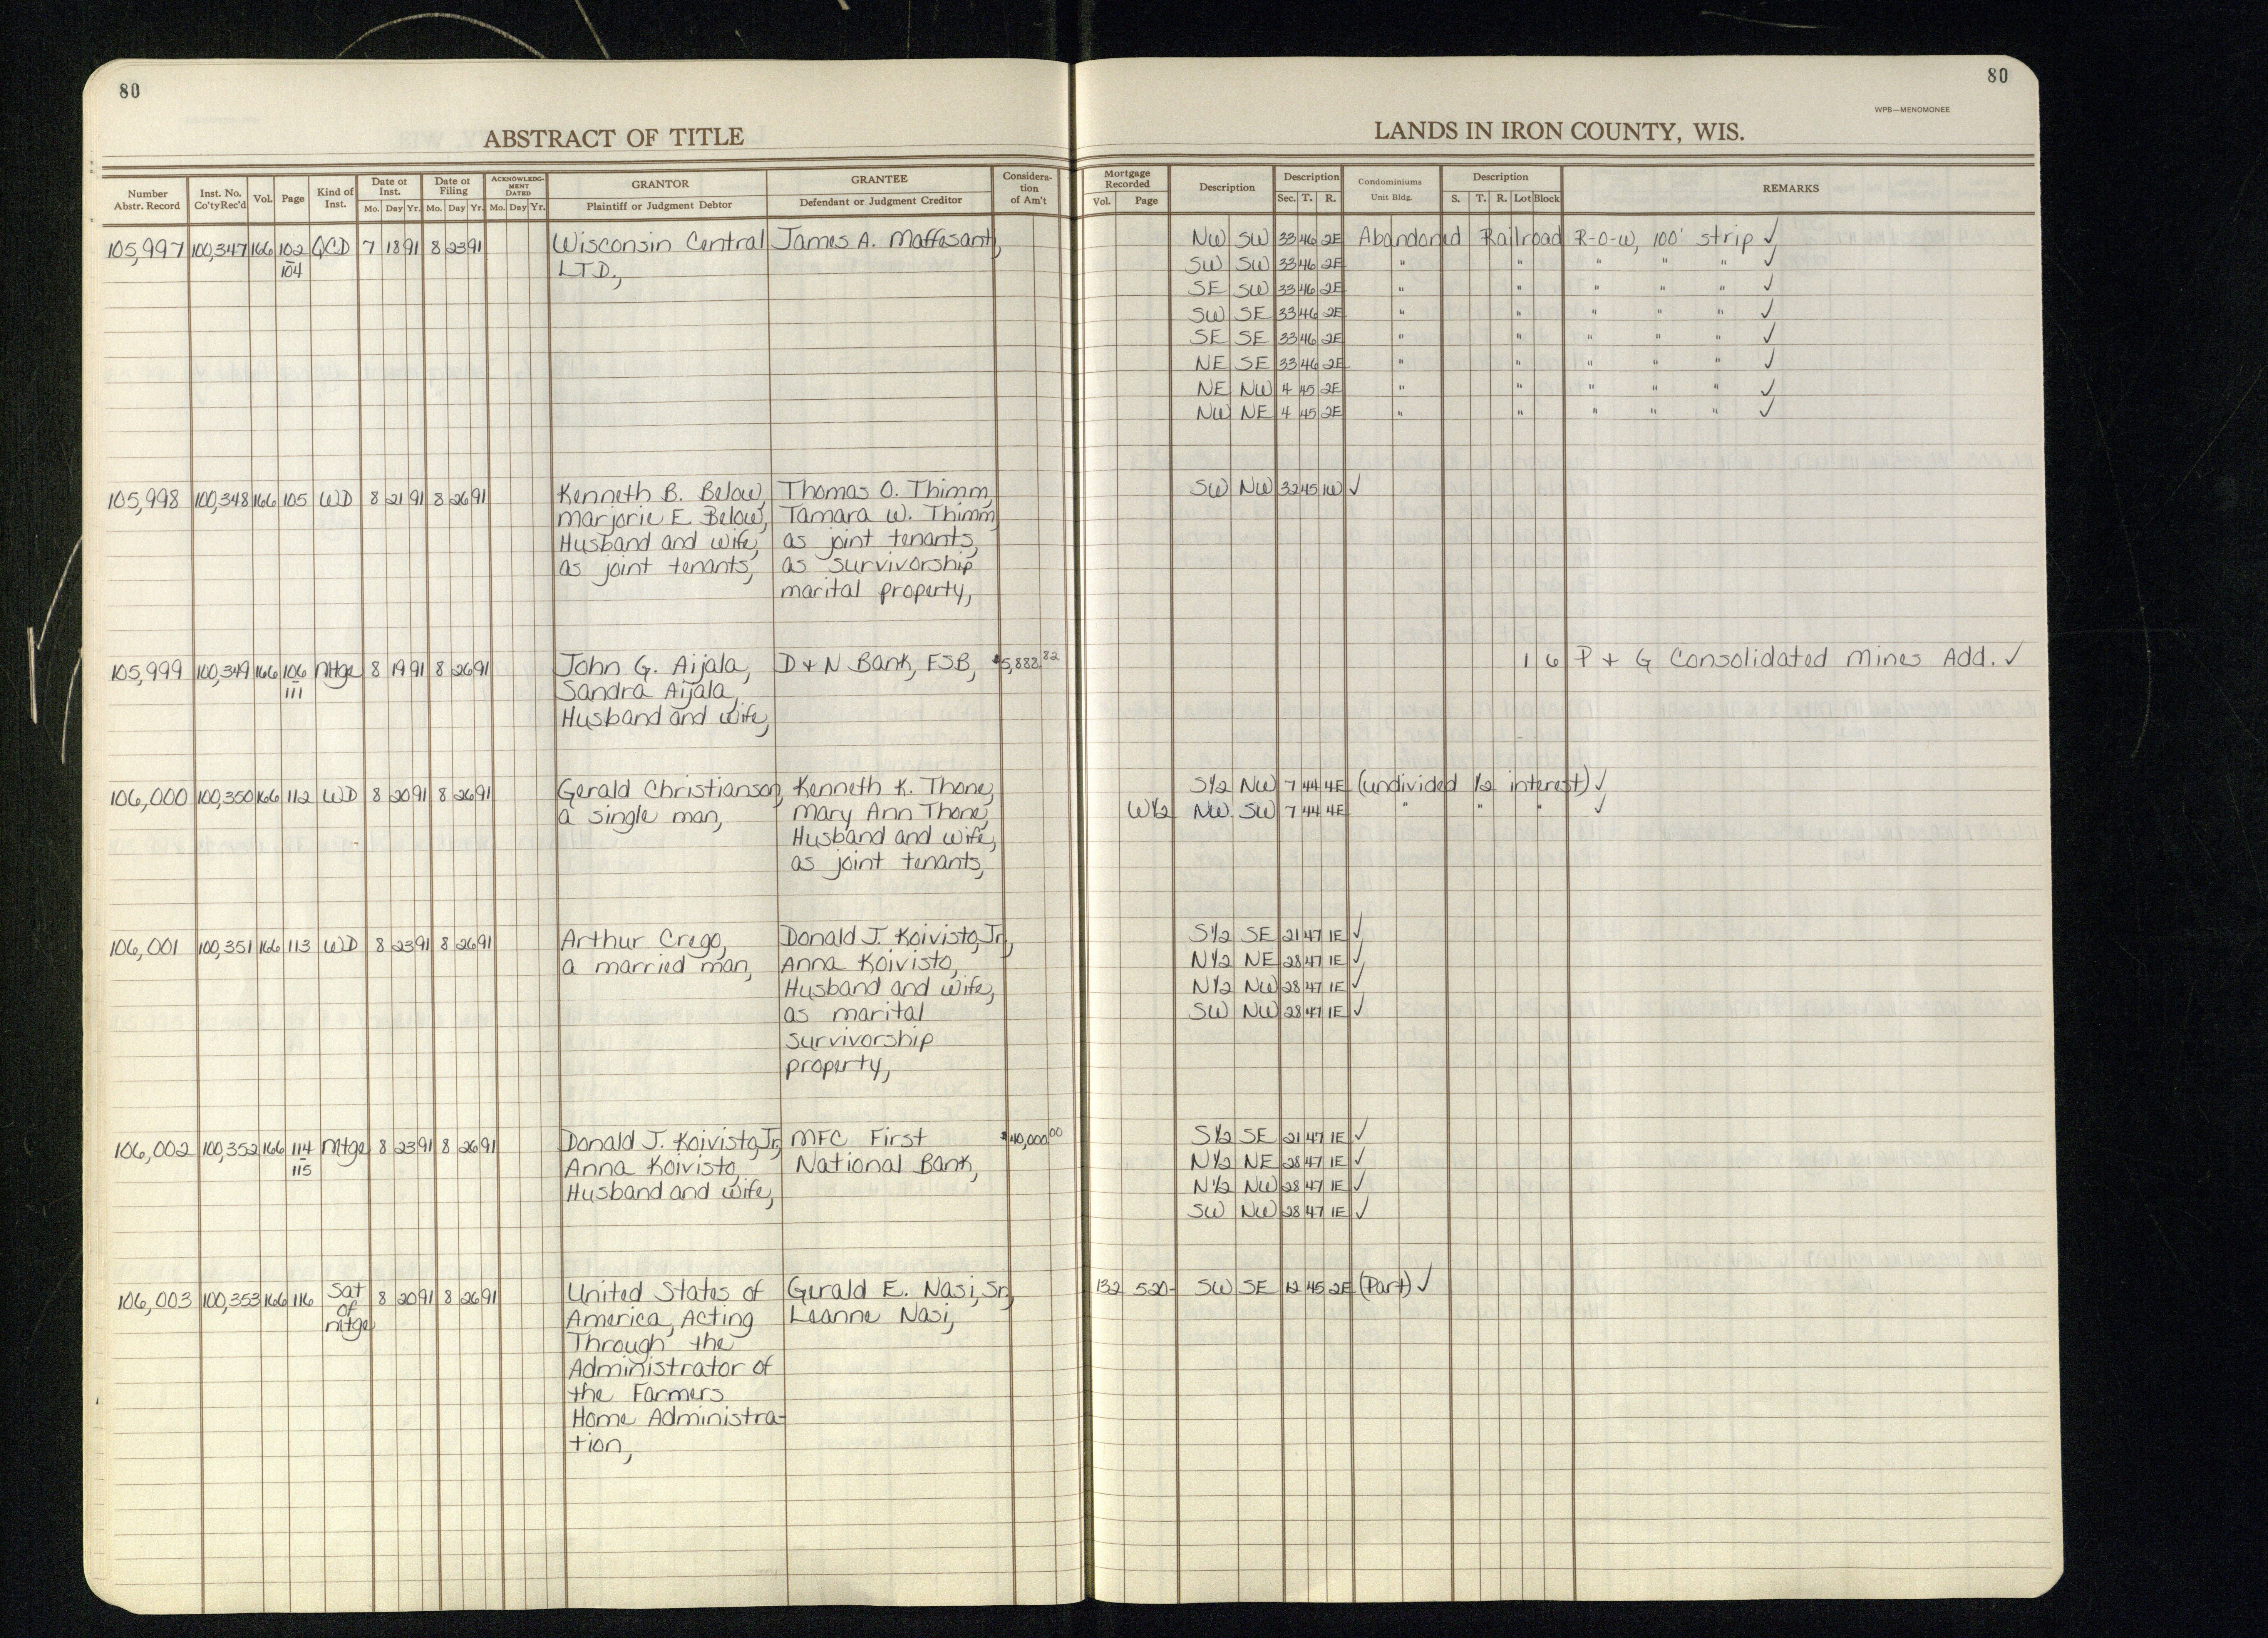 80
80
WPB—MENOMONEE
ABSTRACT OF TITLE
LANDS IN IRON COUNTY, WIS.
Number Abstr. Record | Inst. No. Co'ty Rec'd | Vol. | Page | Kind of Inst. | Date of Inst. Mo. Day Yr. | Date of Filing Mo. Day Yr. | ACKNOWLEDGMENT DATED Mo. Day Yr. | GRANTOR Plaintiff or Judgment Debtor | GRANTEE Defendant or Judgment Creditor | Consideration of Am't | Mortgage Recorded Vol. Page | Description | Description Sec. T. R. | Condominiums Unit Bldg. | Description S. T. R. Lot Block | REMARKS
105,997 100,347 166 102 QCD 7 18 91 8 23 91 Wisconsin Central James A. Maffesanti, NW SW 33 46 2E Abandoned Railroad R-O-W, 100' strip ✓
104 LTD., SW SW 33 46 2E " " " " " ✓
SE SW 33 46 2E " " " " " ✓
SW SE 33 46 2E " " " " " ✓
SE SE 33 46 2E " " " " " ✓
NE SE 33 46 2E " " " " " ✓
NE NW 4 45 2E " " " " " ✓
NW NE 4 45 2E " " " " " ✓
105,998 100,348 166 105 WD 8 21 91 8 26 91 Kenneth B. Below, Thomas O. Thimm, SW NW 32 45 1W ✓
Marjorie E Below, Tamara W. Thimm,
Husband and wife, as joint tenants,
as joint tenants, as survivorship
marital property,
105,999 100,349 166 106 Mtge 8 19 91 8 26 91 John G. Aijala, D + N Bank, FSB, $5,888.82 1 6 P + G Consolidated Mines Add. ✓
111 Sandra Aijala,
Husband and wife,
106,000 100,350 166 112 WD 8 20 91 8 26 91 Gerald Christianson, Kenneth K. Thone, S½ NW 7 44 4E (undivided ½ interest) ✓
a single man, Mary Ann Thone, W½ NW SW 7 44 4E " " " ✓
Husband and wife,
as joint tenants,
106,001 100,351 166 113 WD 8 23 91 8 26 91 Arthur Crego, Donald J. Koivisto, Jr., S½ SE 21 47 1E ✓
a married man, Anna Koivisto, N½ NE 28 47 1E ✓
Husband and wife, N½ NW 28 47 1E ✓
as marital SW NW 28 47 1E ✓
survivorship
property,
106,002 100,352 166 114 Mtge 8 23 91 8 26 91 Donald J. Koivisto, Jr. MFC First $40,000.00 S½ SE 21 47 1E ✓
115 Anna Koivisto, National Bank, N½ NE 28 47 1E ✓
Husband and wife, N½ NW 28 47 1E ✓
SW NW 28 47 1E ✓
106,003 100,353 166 116 Sat 8 20 91 8 26 91 United States of Gerald E. Nasi, Sr., 132 520 SW SE 12 45 2E (Part) ✓
of America, Acting Leanne Nasi,
mtge Through the
Administrator of
the Farmers
Home Administra-
tion,